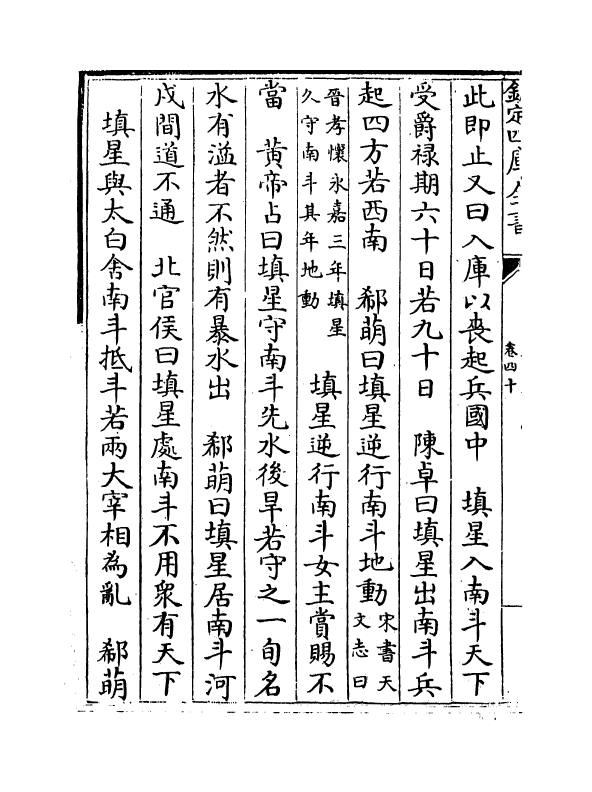 欽定四庫全書
卷四十
此即止又曰入庫以喪起兵國中　填星入南斗天下
受爵祿期六十日若九十日　陳卓曰填星出南斗兵
起四方若西南　郗萌曰填星逆行南斗地動宋書天文志曰
晉孝懷永嘉三年填星久守南斗其年地動　填星逆行南斗女主賞賜不
當　黃帝占曰填星守南斗先水後旱若守之一旬名
水有溢者不然則有暴水出　郗萌曰填星居南斗河
戍間道不通　北官侯曰填星處南斗不用衆有天下
填星與太白舍南斗抵斗若兩大宰相為亂　郗萌